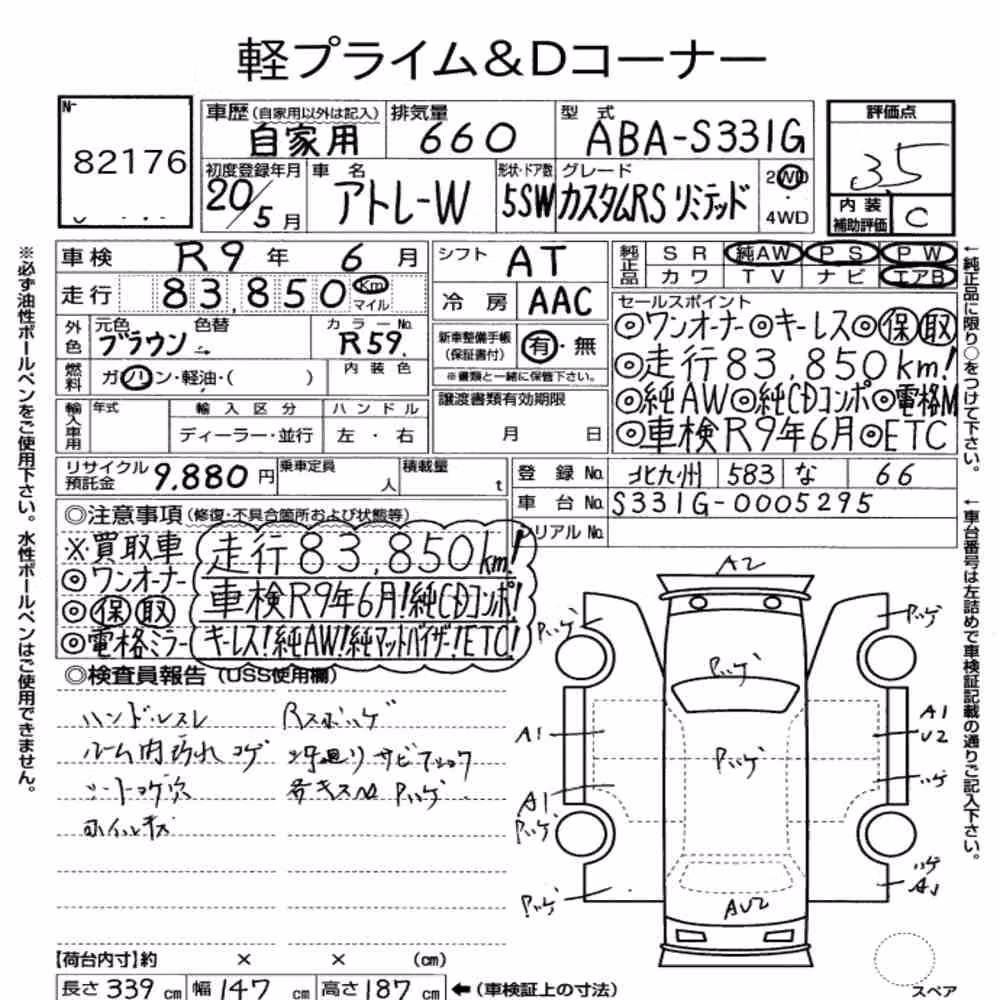 軽プライム&Dコーナー
N-
82176
車歴(自家用以外は記入) 自家用
排気量 660
型式 ABA-S331G
評価点 3.5
初度登録年月 20/5月
車名 アトレーW
形状・ドア数 5SW
グレード カスタムRS リミテッド
2WD
4WD
内装補助評価 C
車検 R9年 6月
走行 83,850 Km マイル
外色 元色 ブラウン 色替 カラーNo. R59.
燃料 ガソリン・軽油・( ) 内装色
輸入車用 年式 輸入区分 ディーラー・並行 ハンドル 左・右
シフト AT
冷房 AAC
新車整備手帳(保証書付) 有・無
※書類と一緒に保管下さい。
譲渡書類有効期限
月 日
純正品 SR 純AW PS PW
カワ TV ナビ エアB
セールスポイント
◎ワンオーナー◎キーレス◎保取
◎走行83,850km!
◎純AW◎純CDコンポ◎電格M
◎車検R9年6月◎ETC
リサイクル預託金 9,880円 乗車定員 人 積載量 t
登録No. 北九州 583 な 66
車台No. S331G-0005295
シリアルNo.
◎注意事項(修復・不具合箇所および状態等)
※買取車
◎ワンオーナー
◎保取
◎電格ミラー
走行83,850km!
車検R9年6月!純CDコンポ!
キーレス!純AW!純マットバイザー!ETC!
◎検査員報告(USS使用欄)
ハンドルスレ
ルーム内汚れ コゲ
シートコゲ穴
ホイルキズ
Rスポハゲ
下廻りサビ
各キズ凹 Pハゲ
A2
Pハゲ
Pハゲ
Pハゲ
Pハゲ
A1
A1
U2
A1
Pハゲ
ハゲ
ハゲ
A1
Pハゲ
AU2
スペア
【荷台内寸】約 × × (cm)
長さ 339 cm 幅 147 cm 高さ 187 cm ←(車検証上の寸法)
※必ず油性ボールペンをご使用下さい。水性ボールペンはご使用できません。
←純正品に限り○をつけて下さい。
←車台番号は左詰めで車検証記載の通りご記入下さい。